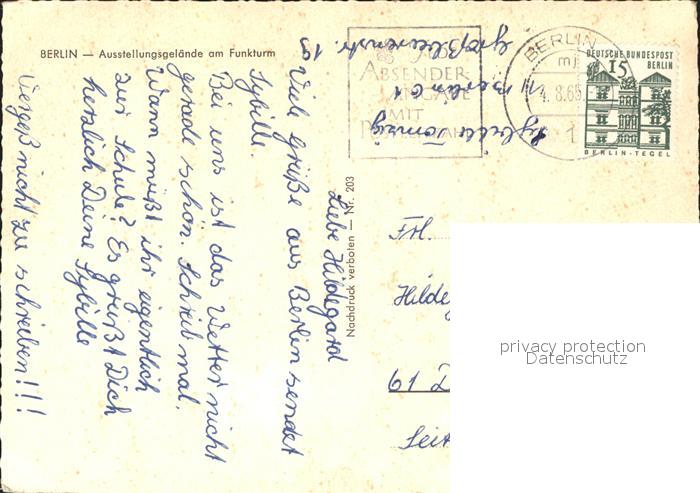 BERLIN — Ausstellungsgelände am Funkturm
Liebe Hildegard
Viele Grüße aus Berlin sendet
Sybille.
Bei uns ist das Wetter nicht
gerade schön. Schreib mal.
Wann müßt ihr eigentlich
zur Schule? Es grüßt Dich
herzlich Deine Sybille
Vergeß nicht zu schreiben!!!
Nachdruck verboten — Nr. 203
ABSENDER
MIT
Sybille
1 Berlin 61
Großbeerenstr. 19
BERLIN
4. 8.65
DEUTSCHE BUNDESPOST
BERLIN
15
BERLIN-TEGEL
Frl.
Hilde
61 D
Seit
privacy protection
Datenschutz